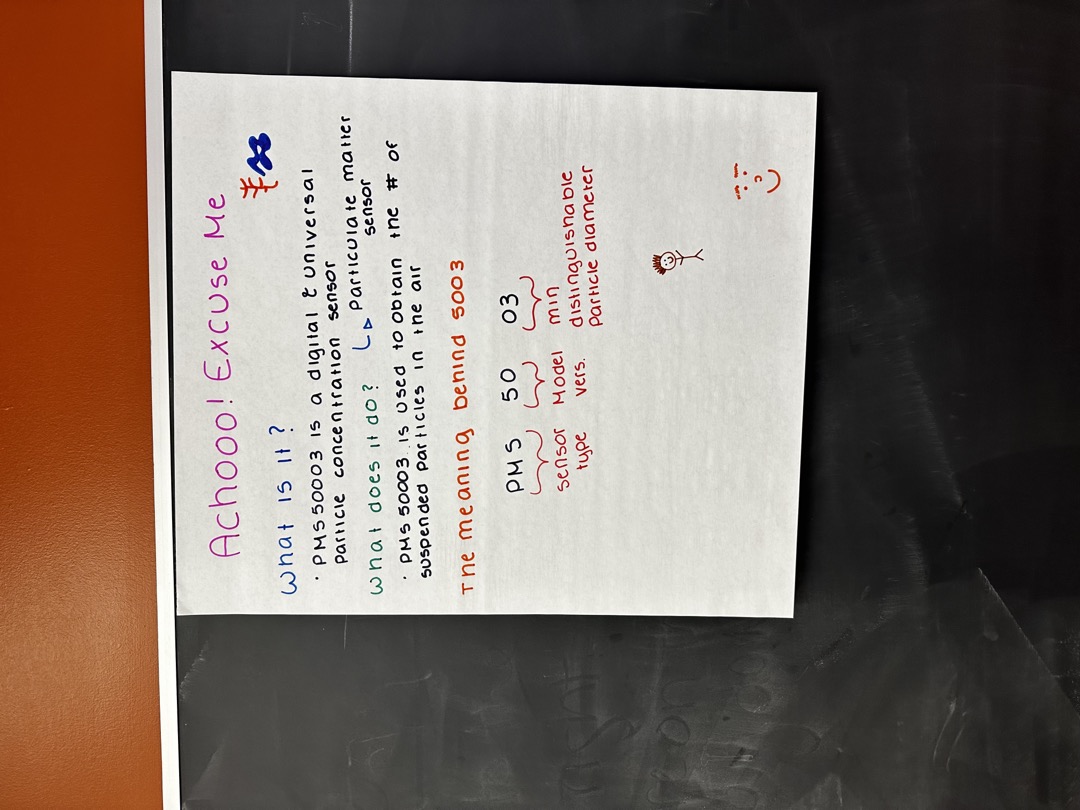 Achooo! Excuse Me
What is it?
· PMS50003 is a digital & universal
particle concentration sensor
↳ Particulate matter
sensor
What does it do?
· PMS 50003 is used to obtain the # of
suspended particles in the air
The meaning behind 5003
PMS 50 03
sensor type
Model vers.
min distinguishable particle diameter